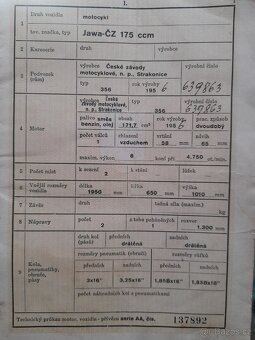 I.
1 Druh vozidla motocykl
tov. značka, typ Jawa-ČZ 175 ccm
2 Karoserie druh výrobce
výrobce České závody výrobní číslo
3 Podvozek (rám) motocyklové, n. p., Strakonice 639863
typ 356 rok výroby 195 6
výrobce České závody motocyklové, n. p., Strakonice typ 356 výrobní číslo 639863
4 Motor palivo směs benzin, olej obsah 171,7 cm³ rok výroby 195 6 druh práce dvoudobý
počet válců 1 chlazení vzduchem vrtání 58 mm zdvih 65 mm
maxim. výkon 8 koní při 4.750 ot./min.
5 Počet míst k sezení 2 k stání
6 Vnější rozměry vozidla délka 1960 mm šířka 650 mm výška 1010 mm
7 Závěs druh tažná síla (maxim.) kg
8 Nápravy počet 2 z toho poháněných 1 rozvor 1.300 mm
9 Kola, pneumatiky, obruče, pásy druh kol (pásů) předních drátěná zadních drátěná
rozměry pneumatik (obručí) rozměry ráfků
předních 3x16" zadních 3,25x16" předních 1,85Bx16" zadních 1,85Bx16"
počet náhradních kol s pneumatikami
Technický průkaz motor. vozidla - přívěsu serie AA, čís. 137892